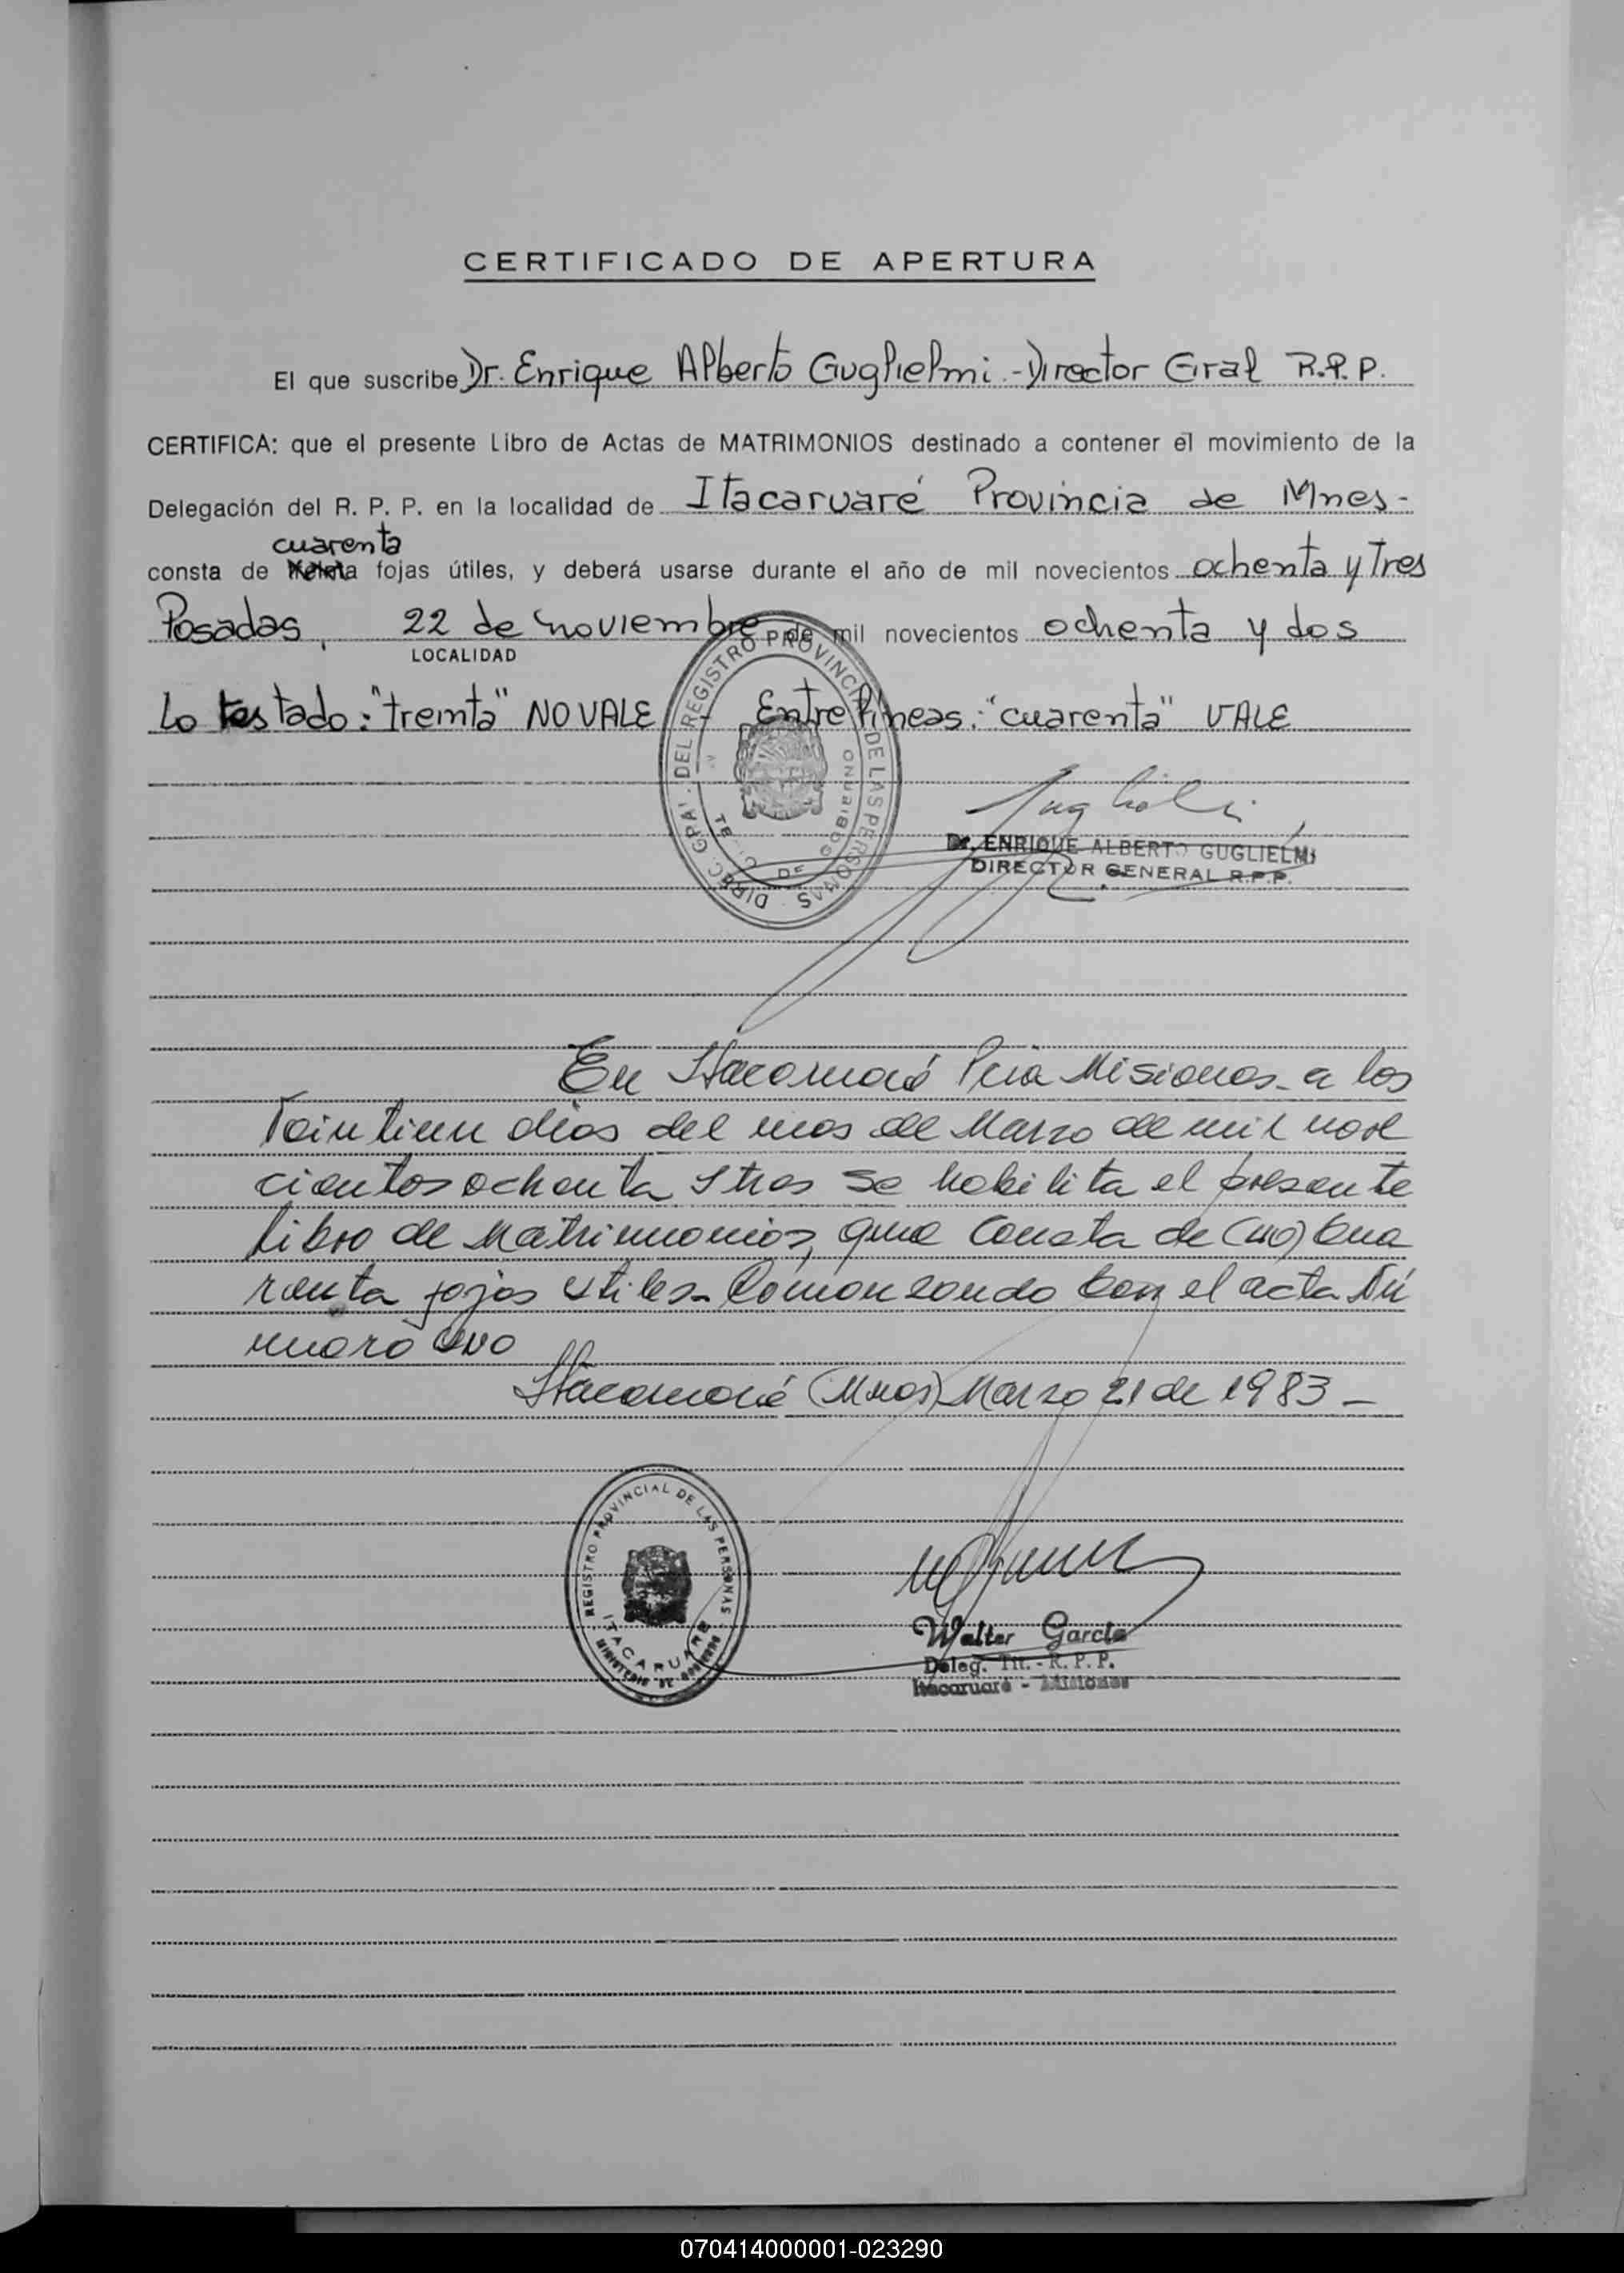 CERTIFICADO DE APERTURA
El que suscribe Dr. Enrique Alberto Guglielmi.-Director Gral R.P.P.
CERTIFICA: que el presente Libro de Actas de MATRIMONIOS destinado a contener el movimiento de la
Delegación del R. P. P. en la localidad de Itacaruaré Provincia de Mnes-
cuarenta
consta de treinta fojas útiles, y deberá usarse durante el año de mil novecientos ochenta y tres
Posadas, 22 de noviembre de mil novecientos ochenta y dos
LOCALIDAD
Lo testado: "treinta" NO VALE - Entre líneas: "cuarenta" VALE
DIREC. GRAL. DEL REGISTRO PROVINCIAL DE LAS PERSONAS
DE GOBIERNO
Dr. ENRIQUE ALBERTO GUGLIELMI
DIRECTOR GENERAL R.P.P.
En Itacaruaré Pcia Misiones a los
Veintiun dias del mes de Marzo de mil nove
cientos ochenta y tres se habilita el presente
Libro de Matrimonios, que Consta de (40) Cua
renta fojas utiles- Comenzando Con el acta Nú
mero UNO
Itacaruaré (Mnes) Marzo 21 de 1983-
REGISTRO PROVINCIAL DE LAS PERSONAS
ITACARUARE
MINISTERIO DE GOBIERNO
Walter García
Deleg. Tit. - R. P. P.
Itacaruaré - Misiones
070414000001-023290